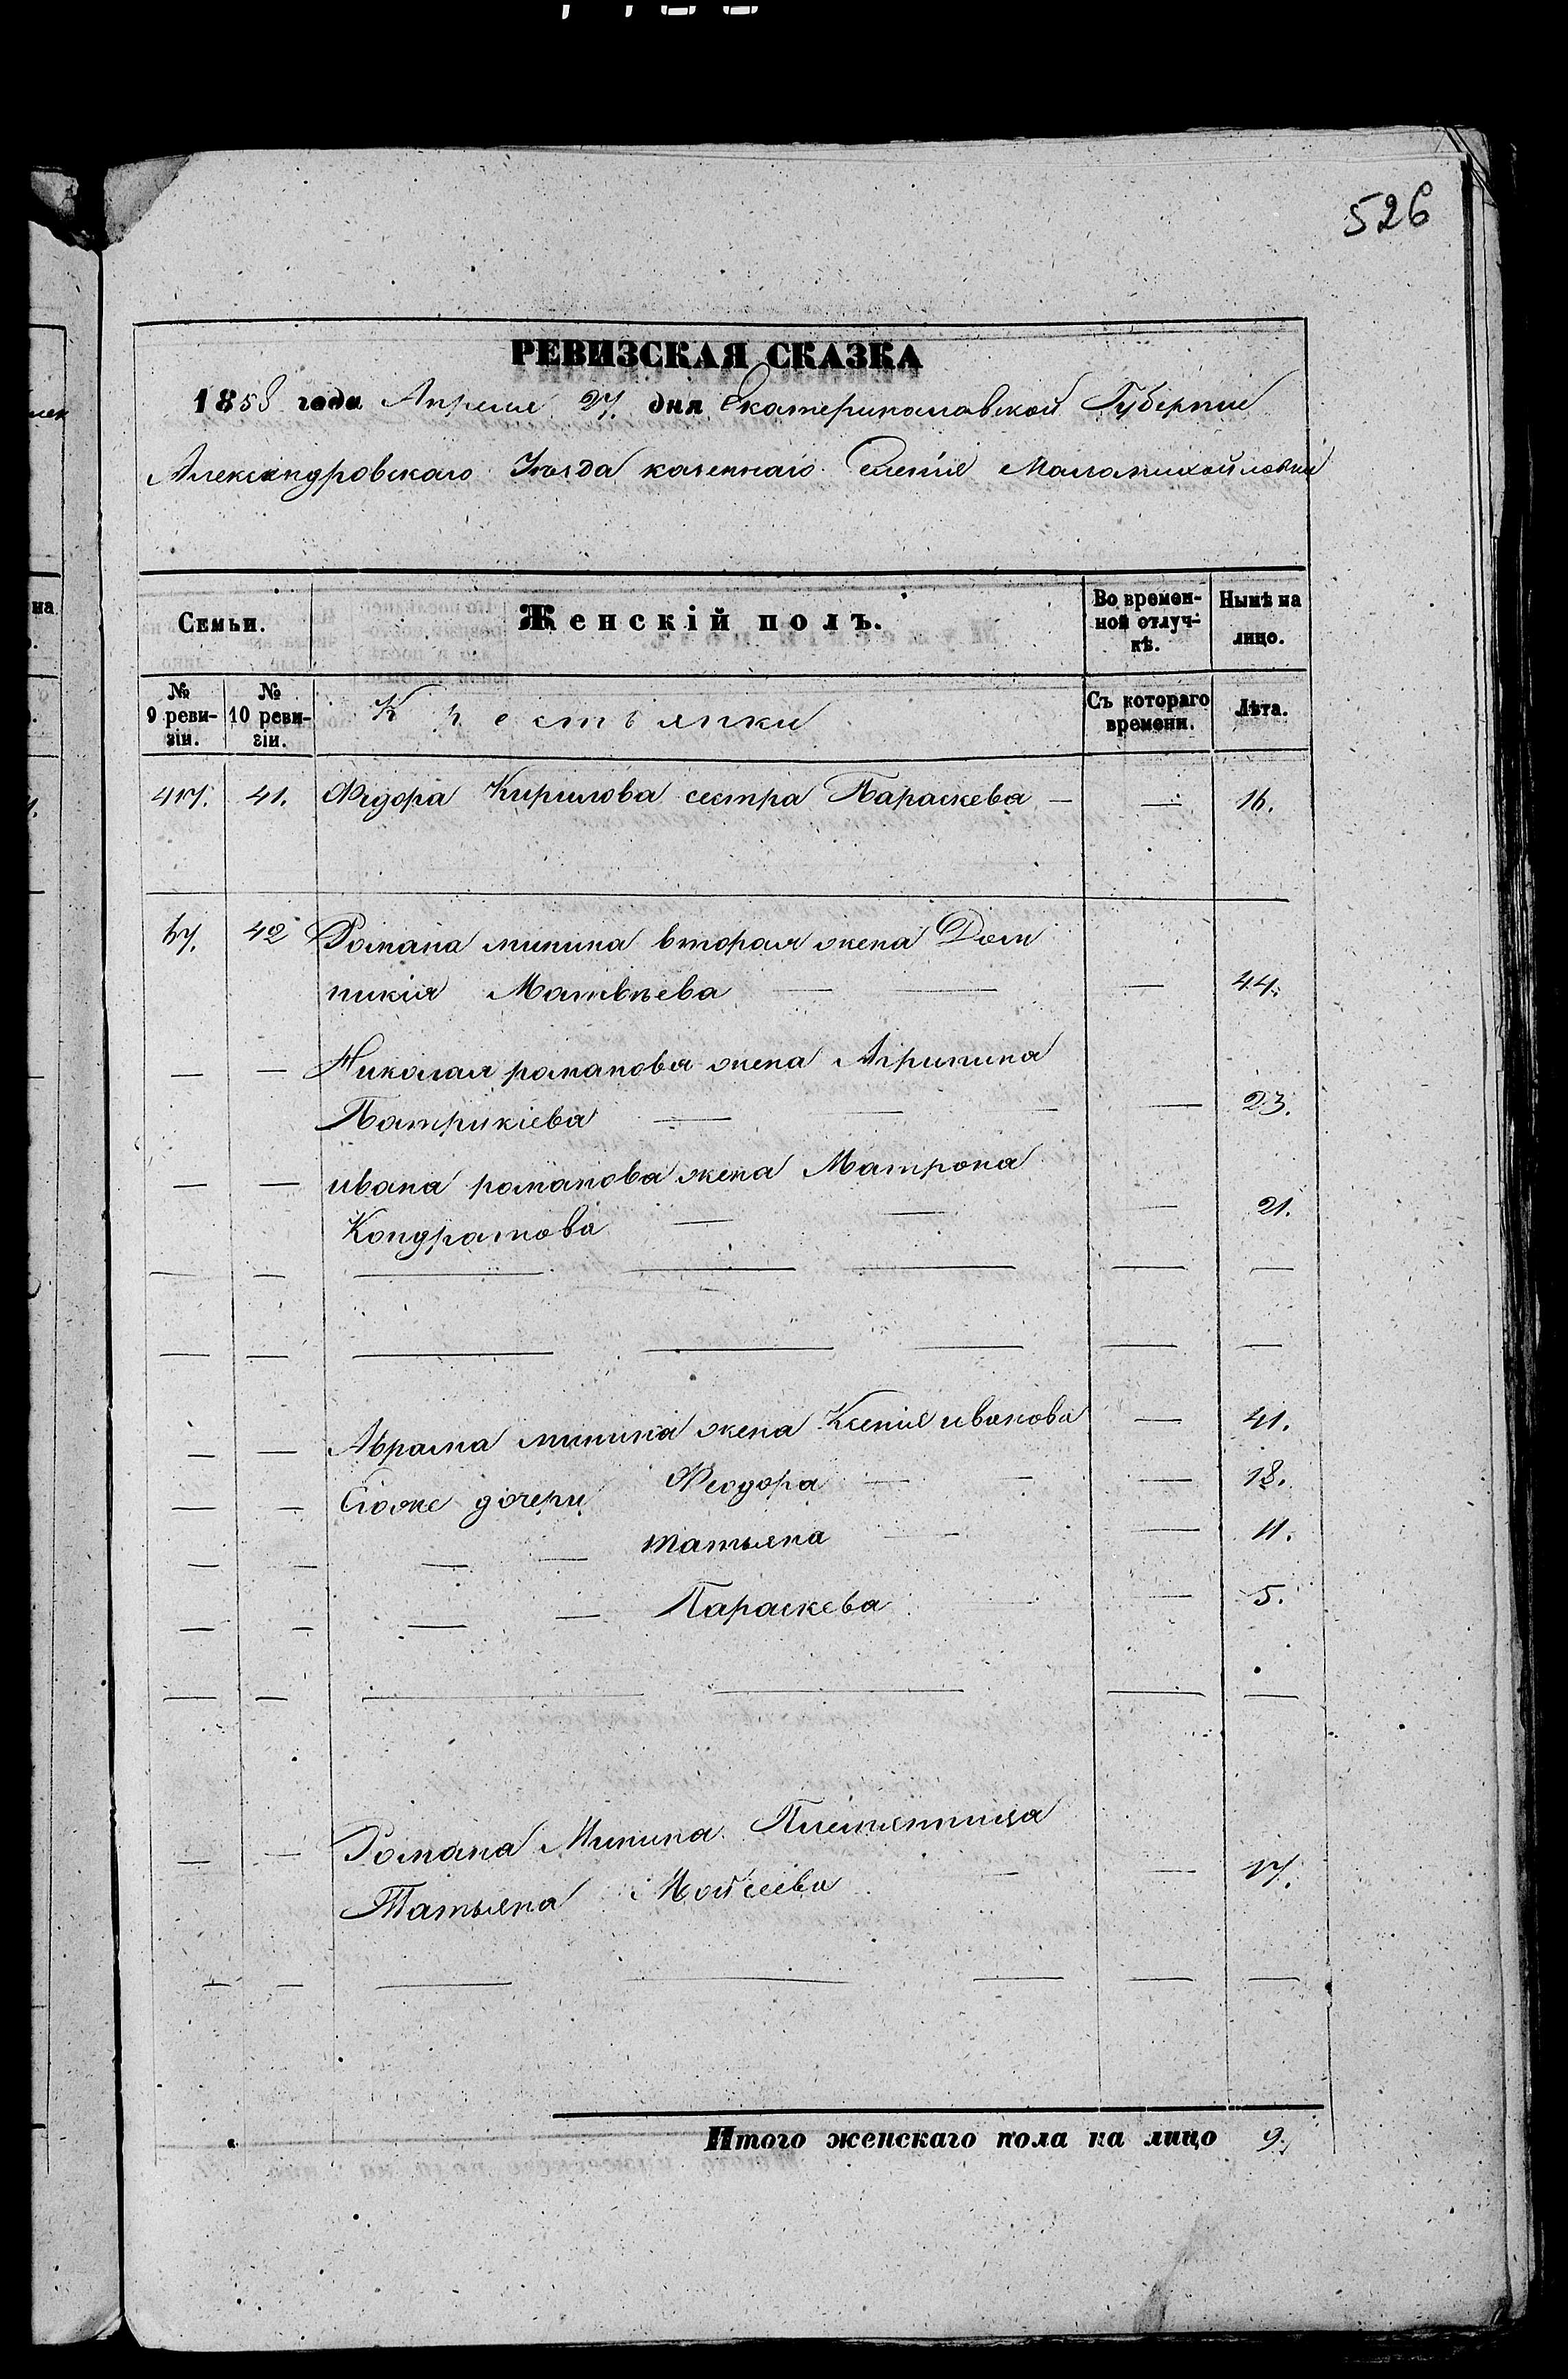 526
РЕВИЗСКАЯ СКАЗКА
1858 года Апреля 27. дня Екатеринославской Губернии
Александровскаго Уѣзда казеннаго Селенія Маломихайловки
Семьи. Женскій полъ. Во времен- Нынѣ на
ной отлуч- лицо.
кѣ.
№ № Крестьянки Съ котораго Лѣта.
9 реви- 10 реви- времени.
зіи. зіи.
417. 41. Федора Кирилова сестра Параскева — — 16.
67. 42 Романа минина вторая жена Дом
никія Матвѣева — — — 44.
— — Николая романова жена Агрипина
Патрикіева — — — — 23.
— — ивана романова жена Матрона
Кондратова — — — 21.
— — — — — — —
— — — — — — —
— — Абрама минина жена Ксенія иванова — 41.
— — Егоже дочери Феодора — — — 18.
— — — — татьяна — — 11.
— — — — Параскева — — 5.
— — — — — —
— — Романа Минина Племянница
Татьяна Мойсеева — — 17.
— — — — — — —
Итого женскаго пола на лицо 9.